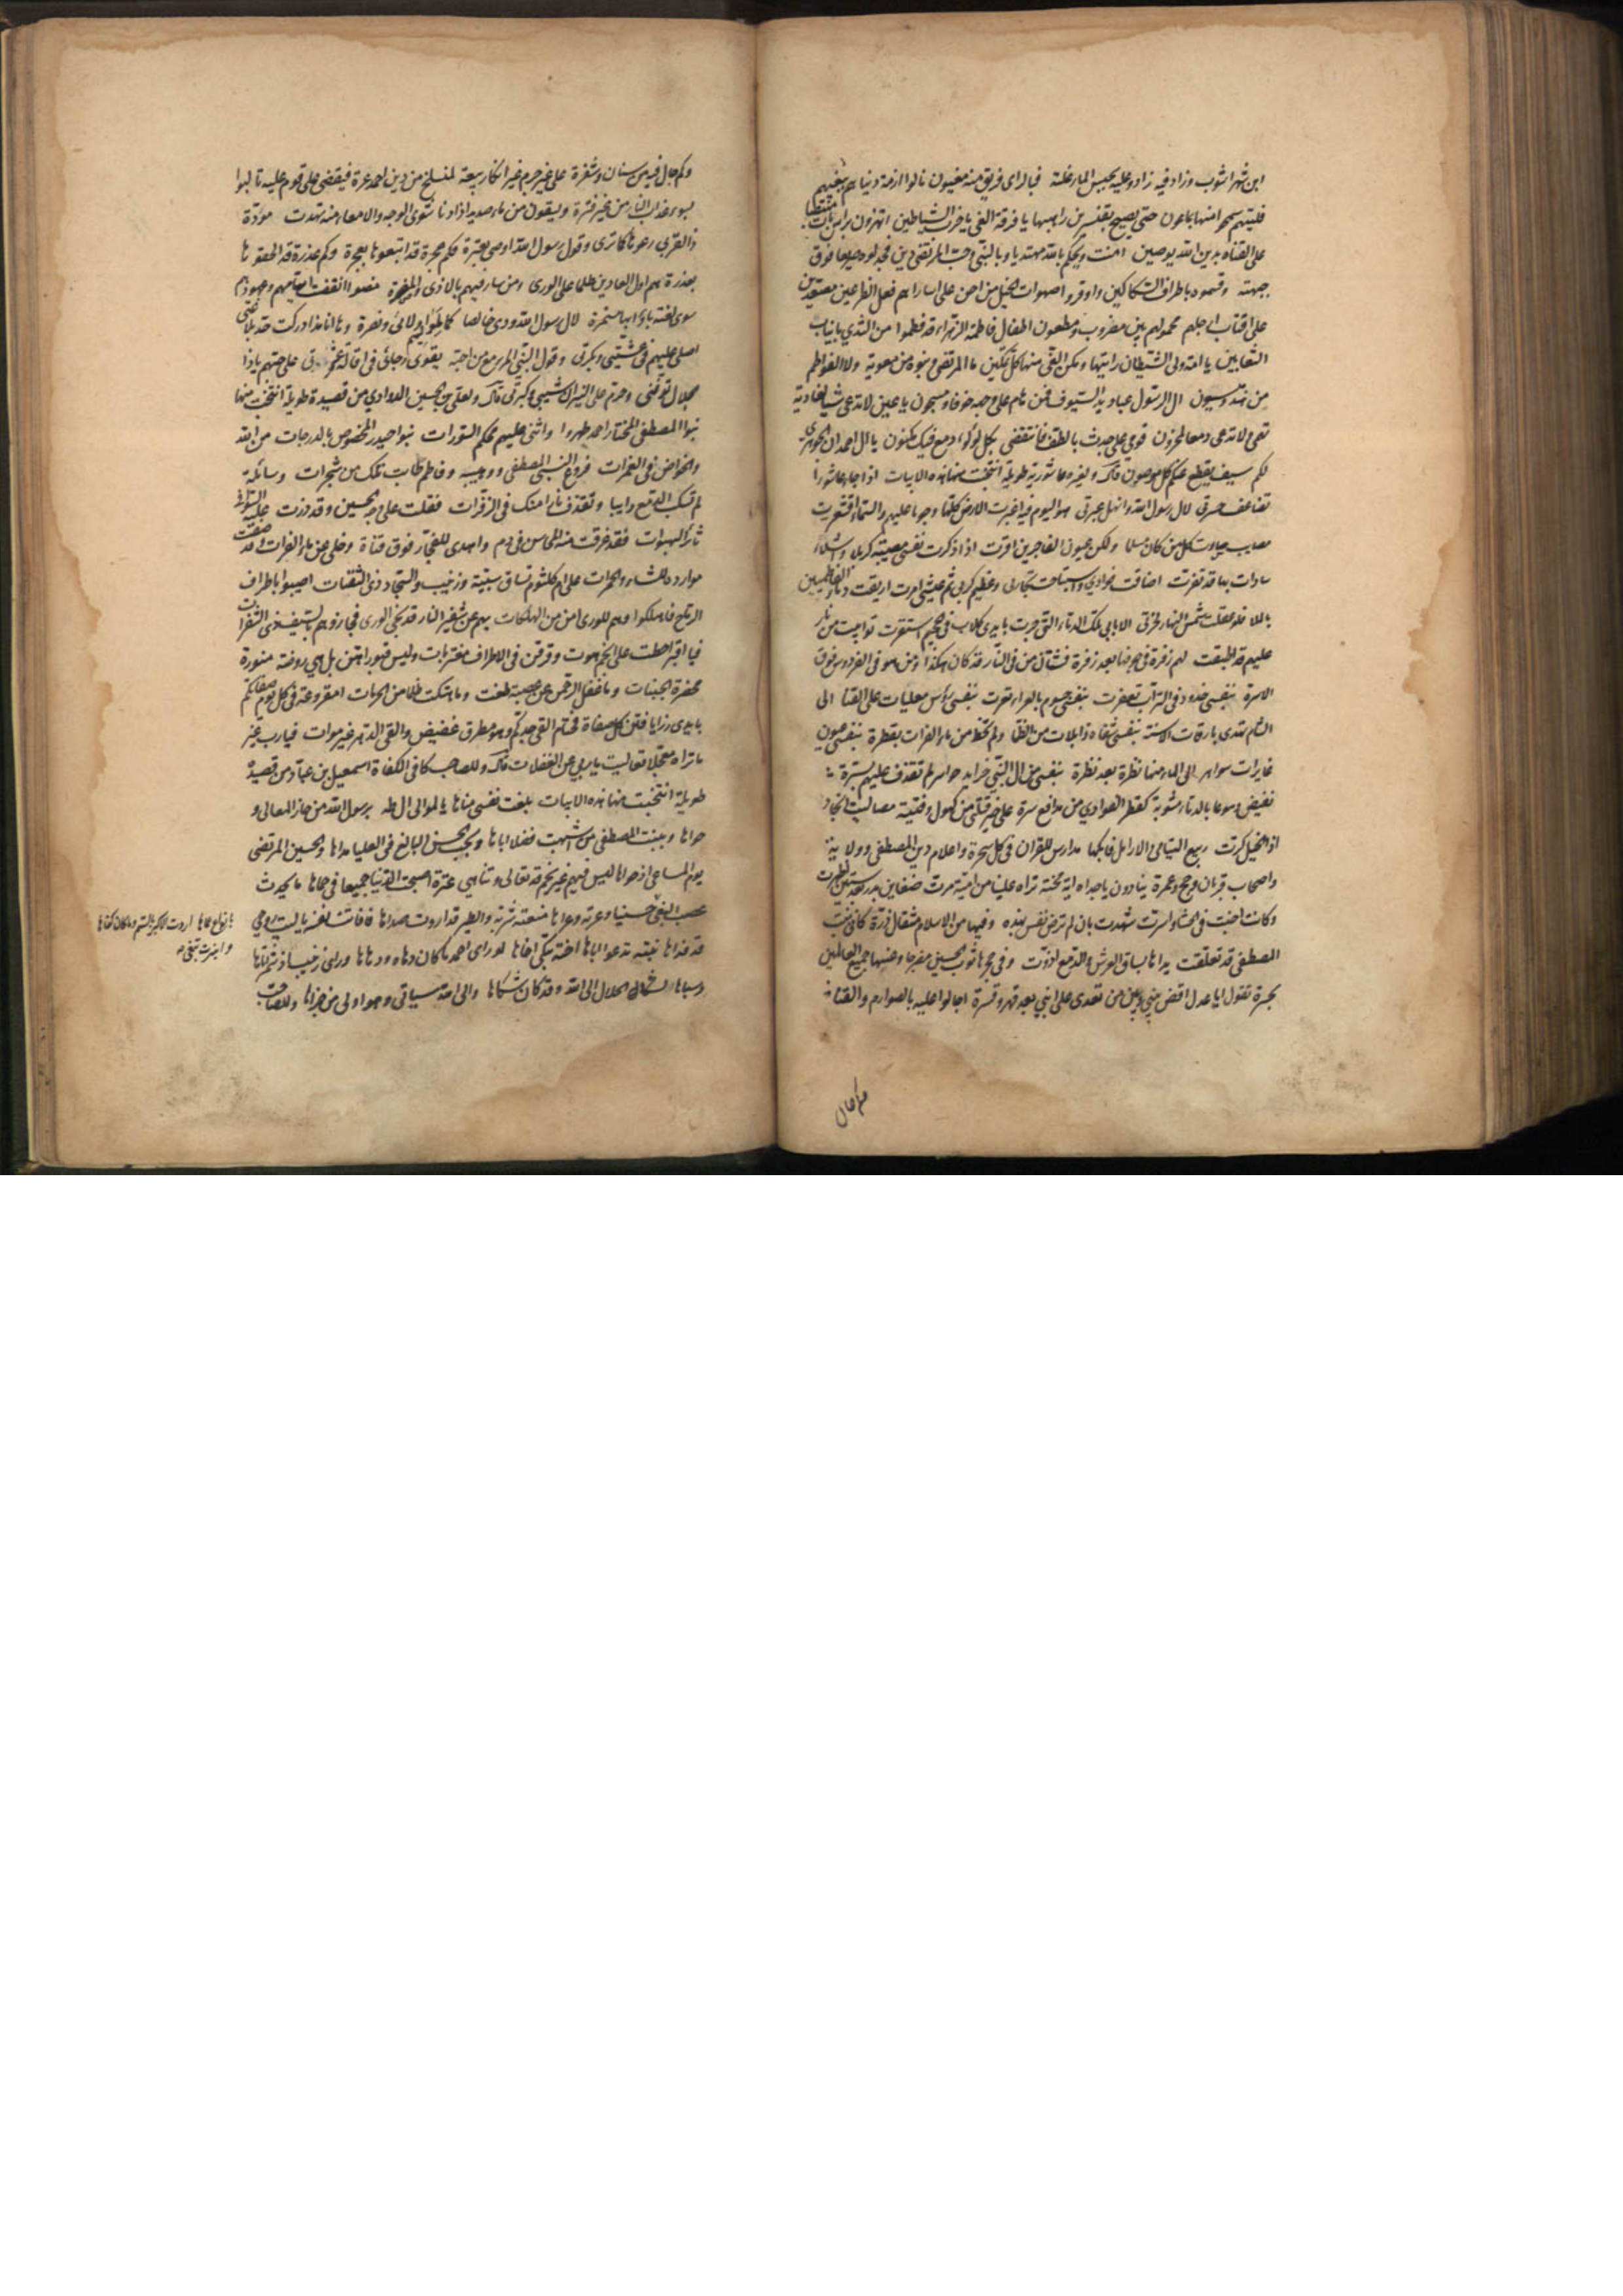 ابن شهراشوب وزاد فيه زاد وعليه يحبس الماء غلة فيالراى فريق منه مغبون نالوا ازمة دنياهم ببغيهم
فليتهم سمحوا منها بماعون حتى يصيح بقنسرين راهبها يا فرقة الغى يا حزب الشياطين اتهزون براس بات منتصبا
على القناة بدين الله يوصينى امنت ويحكم بالله مهتديا وبالنبى وحب المرتضى دينى فجدلوه صريعا فوق
جبهته وقسموه باطراف السكاكين واوقروا صهوات الخيل من احن على اساراهم فعل الفراعين مصفدين
على اقتاب ارحلهم محمولهم بين مضروب ومطعون اطفال فاطمة الزهراء قد فطموا من الثدى بانياب
الثعابين يا امة ولى الشيطان رايتها ومكن الغى منها كل تمكين ما المرتضى وبنوه من معوية ولا الفواطم
من هند وميسون ال الرسول عباديد السيوف فمن هام على وجهه خوفا ومسجون يا عين لا تدعى شيئا لغادية
تهمى ولا تدعى دمعا لمحزون قومى على جدث بالطف فانتقضى بكل لؤلؤ دمع فيك مكنون يا ال احمد ان الجوهرى
لكم سيف يقطع عنكم كل موصون قال ولغيره عاشورية طويلة انتخبت منها هذه الابيات اذا جاء عاشورا
تضاعف حسرتى لال رسول الله وانهل عبرتى هو اليوم فيه اغبرت الارض كلها وجوما عليهم والسماء اقشعرت
مصايب ساءت كل من كان مسلما ولكن عيون الفاجرين اقرت اذا ذكرت نفسى مصيبة كربلا واشلاء
سادات بها قد تفرت اضاقت فؤادى واستباحت تجارتى وعظم كربى ثم عيشى امرت اريقت دماء الفاطميين
بالملا فلو عقلت شمس النهار لخرت الا بابى تلك الدماء التى جرت بايدى كلاب فى الجحيم استقرت توابيت من نار
عليهم قد اطبقت لهم زفرة فى جوفها بعد زفرة فشتان من فى النار قد كان هكذا ومن هو فى الفردوس فوق
الاسرة بنفسى خدود فى التراب تعفرت بنفسى جسوم بالعراء تعرت بنفسى رؤس معليات على القنا الى
الشام تهدى بارقات الاسنة بنفسى شفاه ذابلات من الظما ولم تحظ من ماء الفرات بقطرة بنفسى عيون
غايرات سواهر الى الماء منها نظرة بعد نظرة بنفسى من ال النبى خرايد حواسر لم تقذف عليهم بسترة
تفيض دموعا بالدماء مشوبة كقطر الغوادى من مدافع سرة على خير قتلى من كهول وفتية مصاليت انجاد
اذا الخيل كرت ربيع اليتامى والارامل فابكها مدارس للقران فى كل سحرة واعلام دين المصطفى وولاته
واصحاب قربان وحج وعمرة ينادون يا جداه اية محنة تراه علينا من امية مرت ضغاين بدر بعد ستين اظهرت
وكانت اجنت فى الحشا واسرت شهدت بان لم ترض نفس بهذه وفيها من الاسلام مثقال ذرة كانى ببنت
المصطفى قد تعلقت يداها بساق العرش والدمع اذرت وفى حجرها ثوب الحسين مضرجا وعنها جميع العالمين
بحسرة تقول ايا عدل اقض بينى وبين من تعدى على ابنى بعد قهر وقسرة اجالوا عليه بالصوارم والقنا
وكم جال
وكم جال فيه من سنان وشفرة على غير جرم غير انكار بيعة لمنسلخ من دين احمد عرة فيقضى على قوم عليه تالبوا
بسوء عذاب النار من غير فترة ويسقون من ماء صديد اذا دنا شوى الوجه والامعاء منه تهدت مودة
ذا القربى رعوها كما ترى وقول رسول الله اوصى بعترة فكم عجرة قد اتبعوها بعجرة وكم غدرة قد الحقوها
بغدرة هم اول العادين ظلما على الورى ومن سار فيهم بالاذى والمضرة مضوا وانقضت ايامهم وعهودهم
سوى لعنة باؤا بها مستمرة لال رسول الله ودى خالصا كما لمواليهم ولائى ونصرة وها انا مذ ادركت حد بلاغتى
اصلى عليهم فى عشيتى وبكرتى وقول النبى المرء مع من احبه يقوى رجائى فى اقالة عثرتى على حبهم ياذا
الجلال توفنى وحرم على النيران شيبى وكبرتى قال ولعلى بن الحسين الدوادى من قصيدة طويلة انتخبت منها
بنو المصطفى المختار احمد طهروا واثنى عليهم محكم السورات بنو حيدر المخصوص بالدرجات من الله
والخواض فى الغمرات فروع النبى المصطفى ووصيه وفاطم طابت تلك من شجرات وسائلة
لم تسكب الدمع دايبا وتقذف نارا منك فى الزفرات فقلت على وجه الحسين وقد ذرت عليه السوافى
ثائر الهبوات فقد غرقت منه المحاسن فى دم واهدى للفجار فوق قناة وحلى عن ماء الفرات وقد صفت
موارده للشاء والحمرات على ام كلثوم تساق سبية وزينب والسجاد ذى الثفنات اصيبوا باطراف
الرماح فاهلكوا وهم للورى امن من الهلكات بهم عن شفير النار قد نجى الورى فجازوهم بالسيف ذى الشفرات
فيا اقبرا حطت على انجم هوت وفرقن فى الاطراف مغتربات وليس قبورا هن بل هى روضة منورة
مخضرة الجنبات وما غفل الرحمن عن عصبة طغت وما هتكت ظلما من الحرمات امقروعة فى كل يوم صفاتكم
بايدى رزايا فتن كل صفاة فحتام القى جدكم وهو مطرق غضيض والقى الدهر غير موات فيارب غير
ما تراه معجلا تعاليت يا ربى عن الغفلات قال وللصاحب كافى الكفاة اسمعيل بن عباد من قصيدة
طويلة انتخبت منها هذه الابيات بلغت نفسى مناها بالموالى ال طه برسول الله من حاز المعالى و
حواها وببنت المصطفى من اشبهت فضلا اباها وبحب الحسن البالغ فى العليا مداها والحسين المرتضى
يوم المساعى اذ حواها ليس فيهم غير نجم قد تعالى وتناهى عترة اصبحت الدنيا جميعا فى حماها ما يحدث
عصب البغى حسينا وعرته وعراها منعته شربه والطير قد اروت صداها فافاتت نفسه يا ليت روحى
قد فداها بنته تدعو اباها اخته تبكى اخاها لو راى احمد ما كان دهاه ودهاها وراى زينب اذ شمر اتاها
وسباها لشكى الحال الى الله وقد كان شكاها والى الله سياتى وهو اولى من جزاها وللصاحب
بانواع عماها اردت الاكبر بالسم وما كان كفاها
وانبرت تبغى